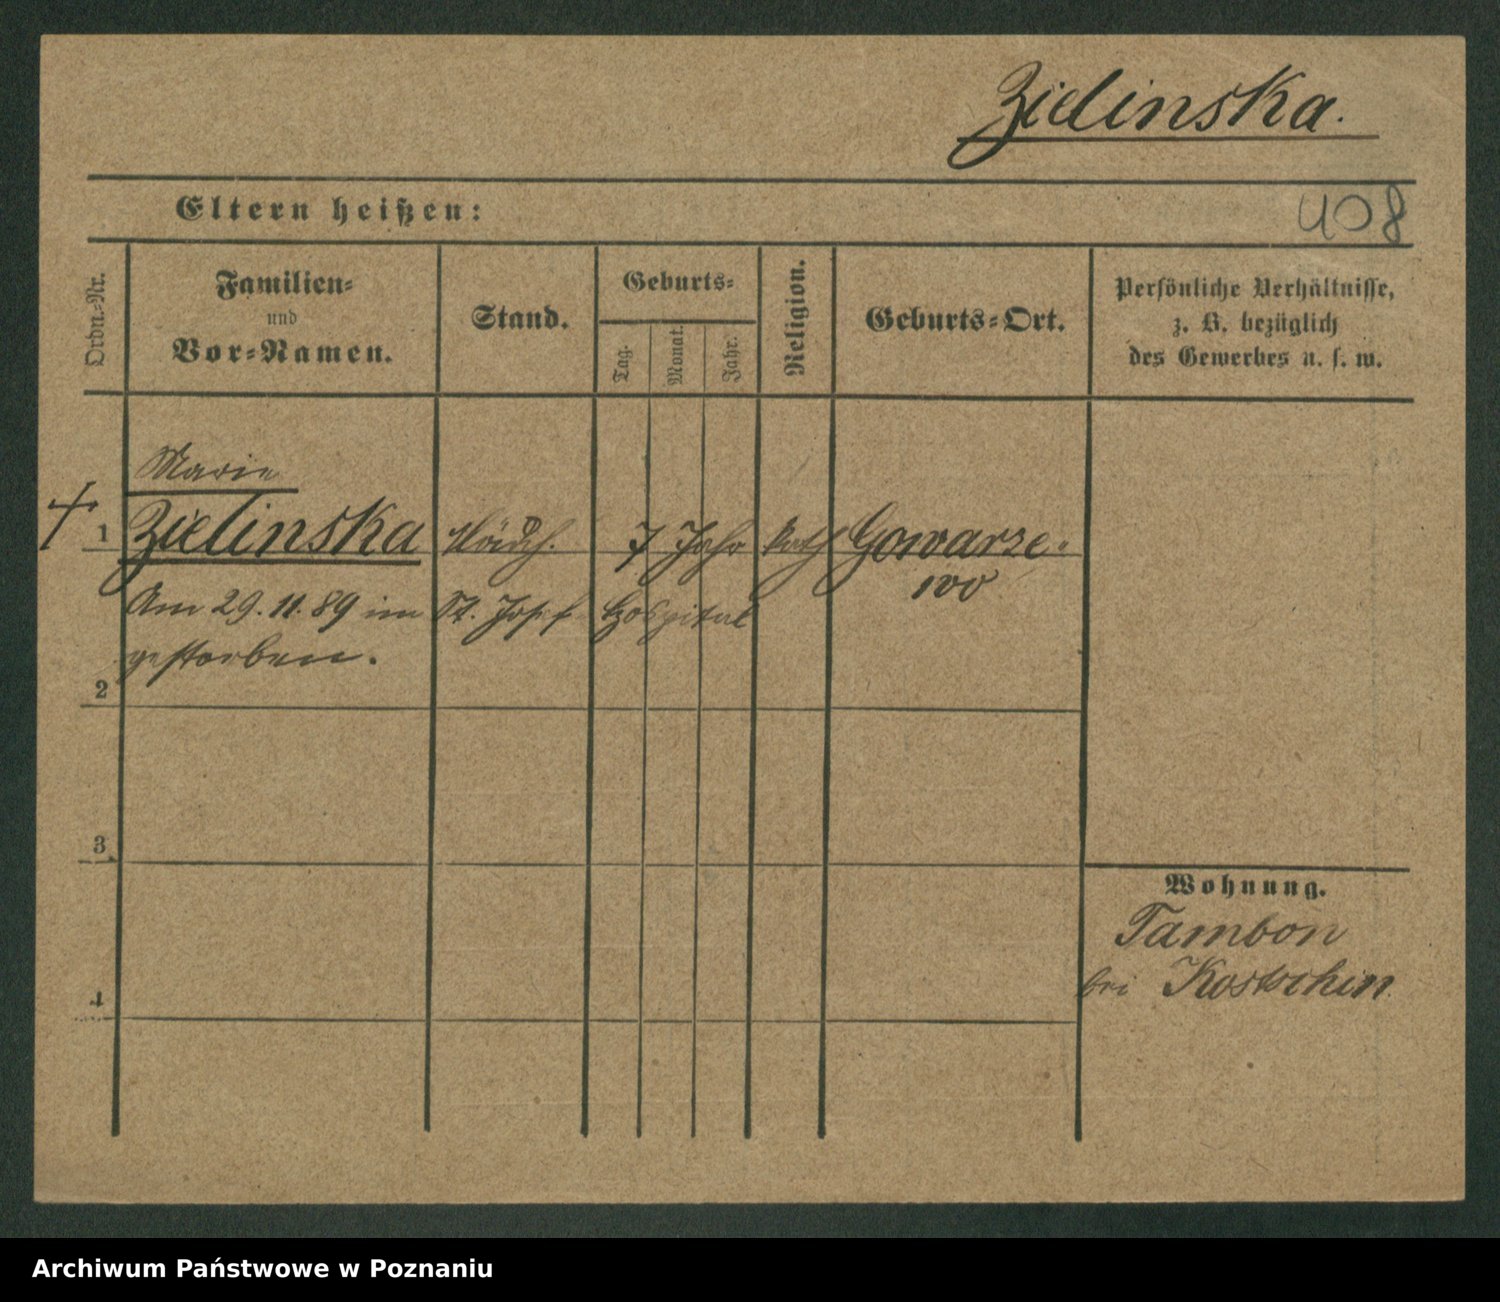 Zielinska.
Eltern heißen:
408
Ordn.-Nr.
Familien-
und
Vor-Namen.
Stand.
Geburts-
Tag.
Monat.
Jahr.
Religion.
Geburts-Ort.
Persönliche Verhältnisse,
z. B. bezüglich
des Gewerbes u. s. w.
Marie
1 Zielinska 7 Jahr kath Gowarze-
wo
Am 29.11.89 im St. Josef Hospital
gestorben.
2
3
4
Wohnung.
Tambon
bei Kostschin
Archiwum Państwowe w Poznaniu